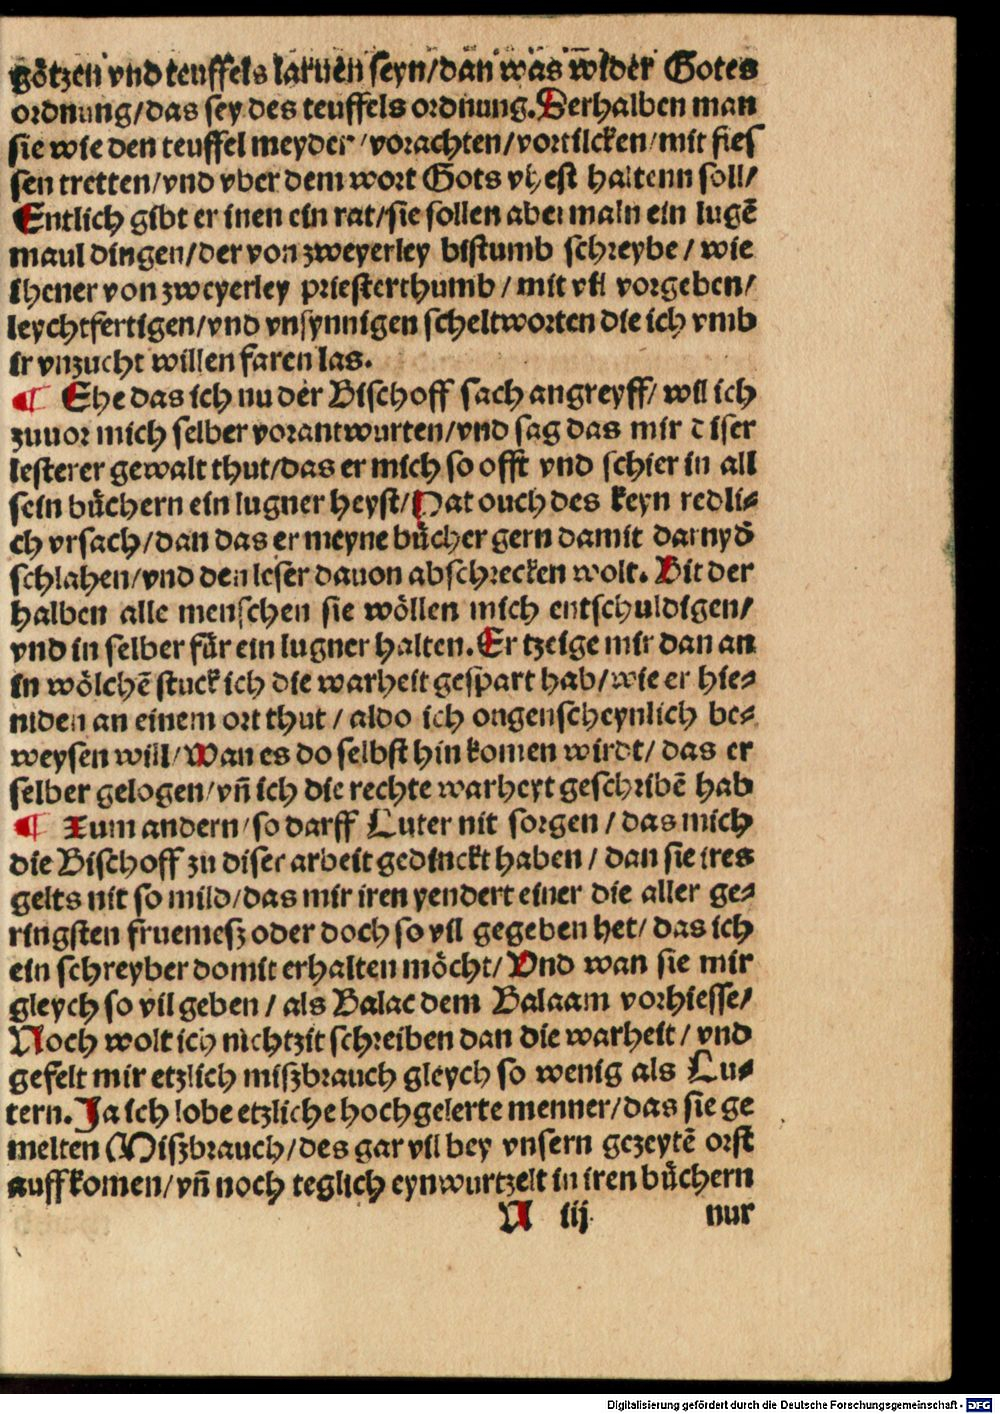 götzen vnd teuffels laruen seyn/dan was wider Gotes
ordnung/das sey des teuffels ordnung.Derhalben man
sie wie den teuffel meyden/vorachten/vortilcken/mit fies
sen tretten/vnd vber dem wort Gots vhest haltenn soll/
Entlich gibt er inen ein rat/sie sollen abermaln ein lugē
maul dingen/der von zweyerley bistumb schreybe/wie
ihener von zweyerley priesterthumb/mit vil vorgeben/
leychtfertigen/vnd vnsynnigen scheltworten die ich vmb
ir vnzucht willen faren las.
¶ Ehe das ich nu der Bischoff sach angreyff/wil ich
zuuor mich selber vorantwurten/vnd sag das mir diser
lesterer gewalt thut/das er mich so offt vnd schier in all
sein bůchern ein lugner heyst/Hat ouch des keyn redli⸗
ch vrsach/dan das er meyne bůcher gern damit darnyd̄
schlahen/vnd den leser dauon abschrecken wolt. Bit der
halben alle menschen sie wöllen mich entschuldigen/
vnd in selber für ein lugner halten.Er tzeige mir dan an
in wölchē stuck ich die warheit gespart hab/wie er hie⸗
niden an einem ort thut/aldo ich ongenscheynlich be⸗
weysen will/Wan es do selbst hin komen wirdt/das er
selber gelogen/vñ ich die rechte warheyt geschribē hab
¶ Zum andern/so darff Luter nit sorgen/das mich
die Bischoff zu diser arbeit gedinckt haben/dan sie ires
gelts nit so mild/das mir iren yendert einer die aller ge⸗
ringsten fruemesz oder doch so vil gegeben het/das ich
ein schreyber domit erhalten möcht/Vnd wan sie mir
gleych so vil geben/als Balac dem Balaam vorhiesse/
Noch wolt ich nichtzit schreiben dan die warheit/vnd
gefelt mir etzlich miszbrauch gleych so wenig als Lu⸗
tern.Ja ich lobe etzliche hochgelerte menner/das sie ge
melten Miszbrauch/des gar vil bey vnsern gezeytē orst
auffkomen/vñ noch teglich eynwurtzelt in iren bůchern
A iij nur
Digitalisierung gefördert durch die Deutsche Forschungsgemeinschaft - DFG